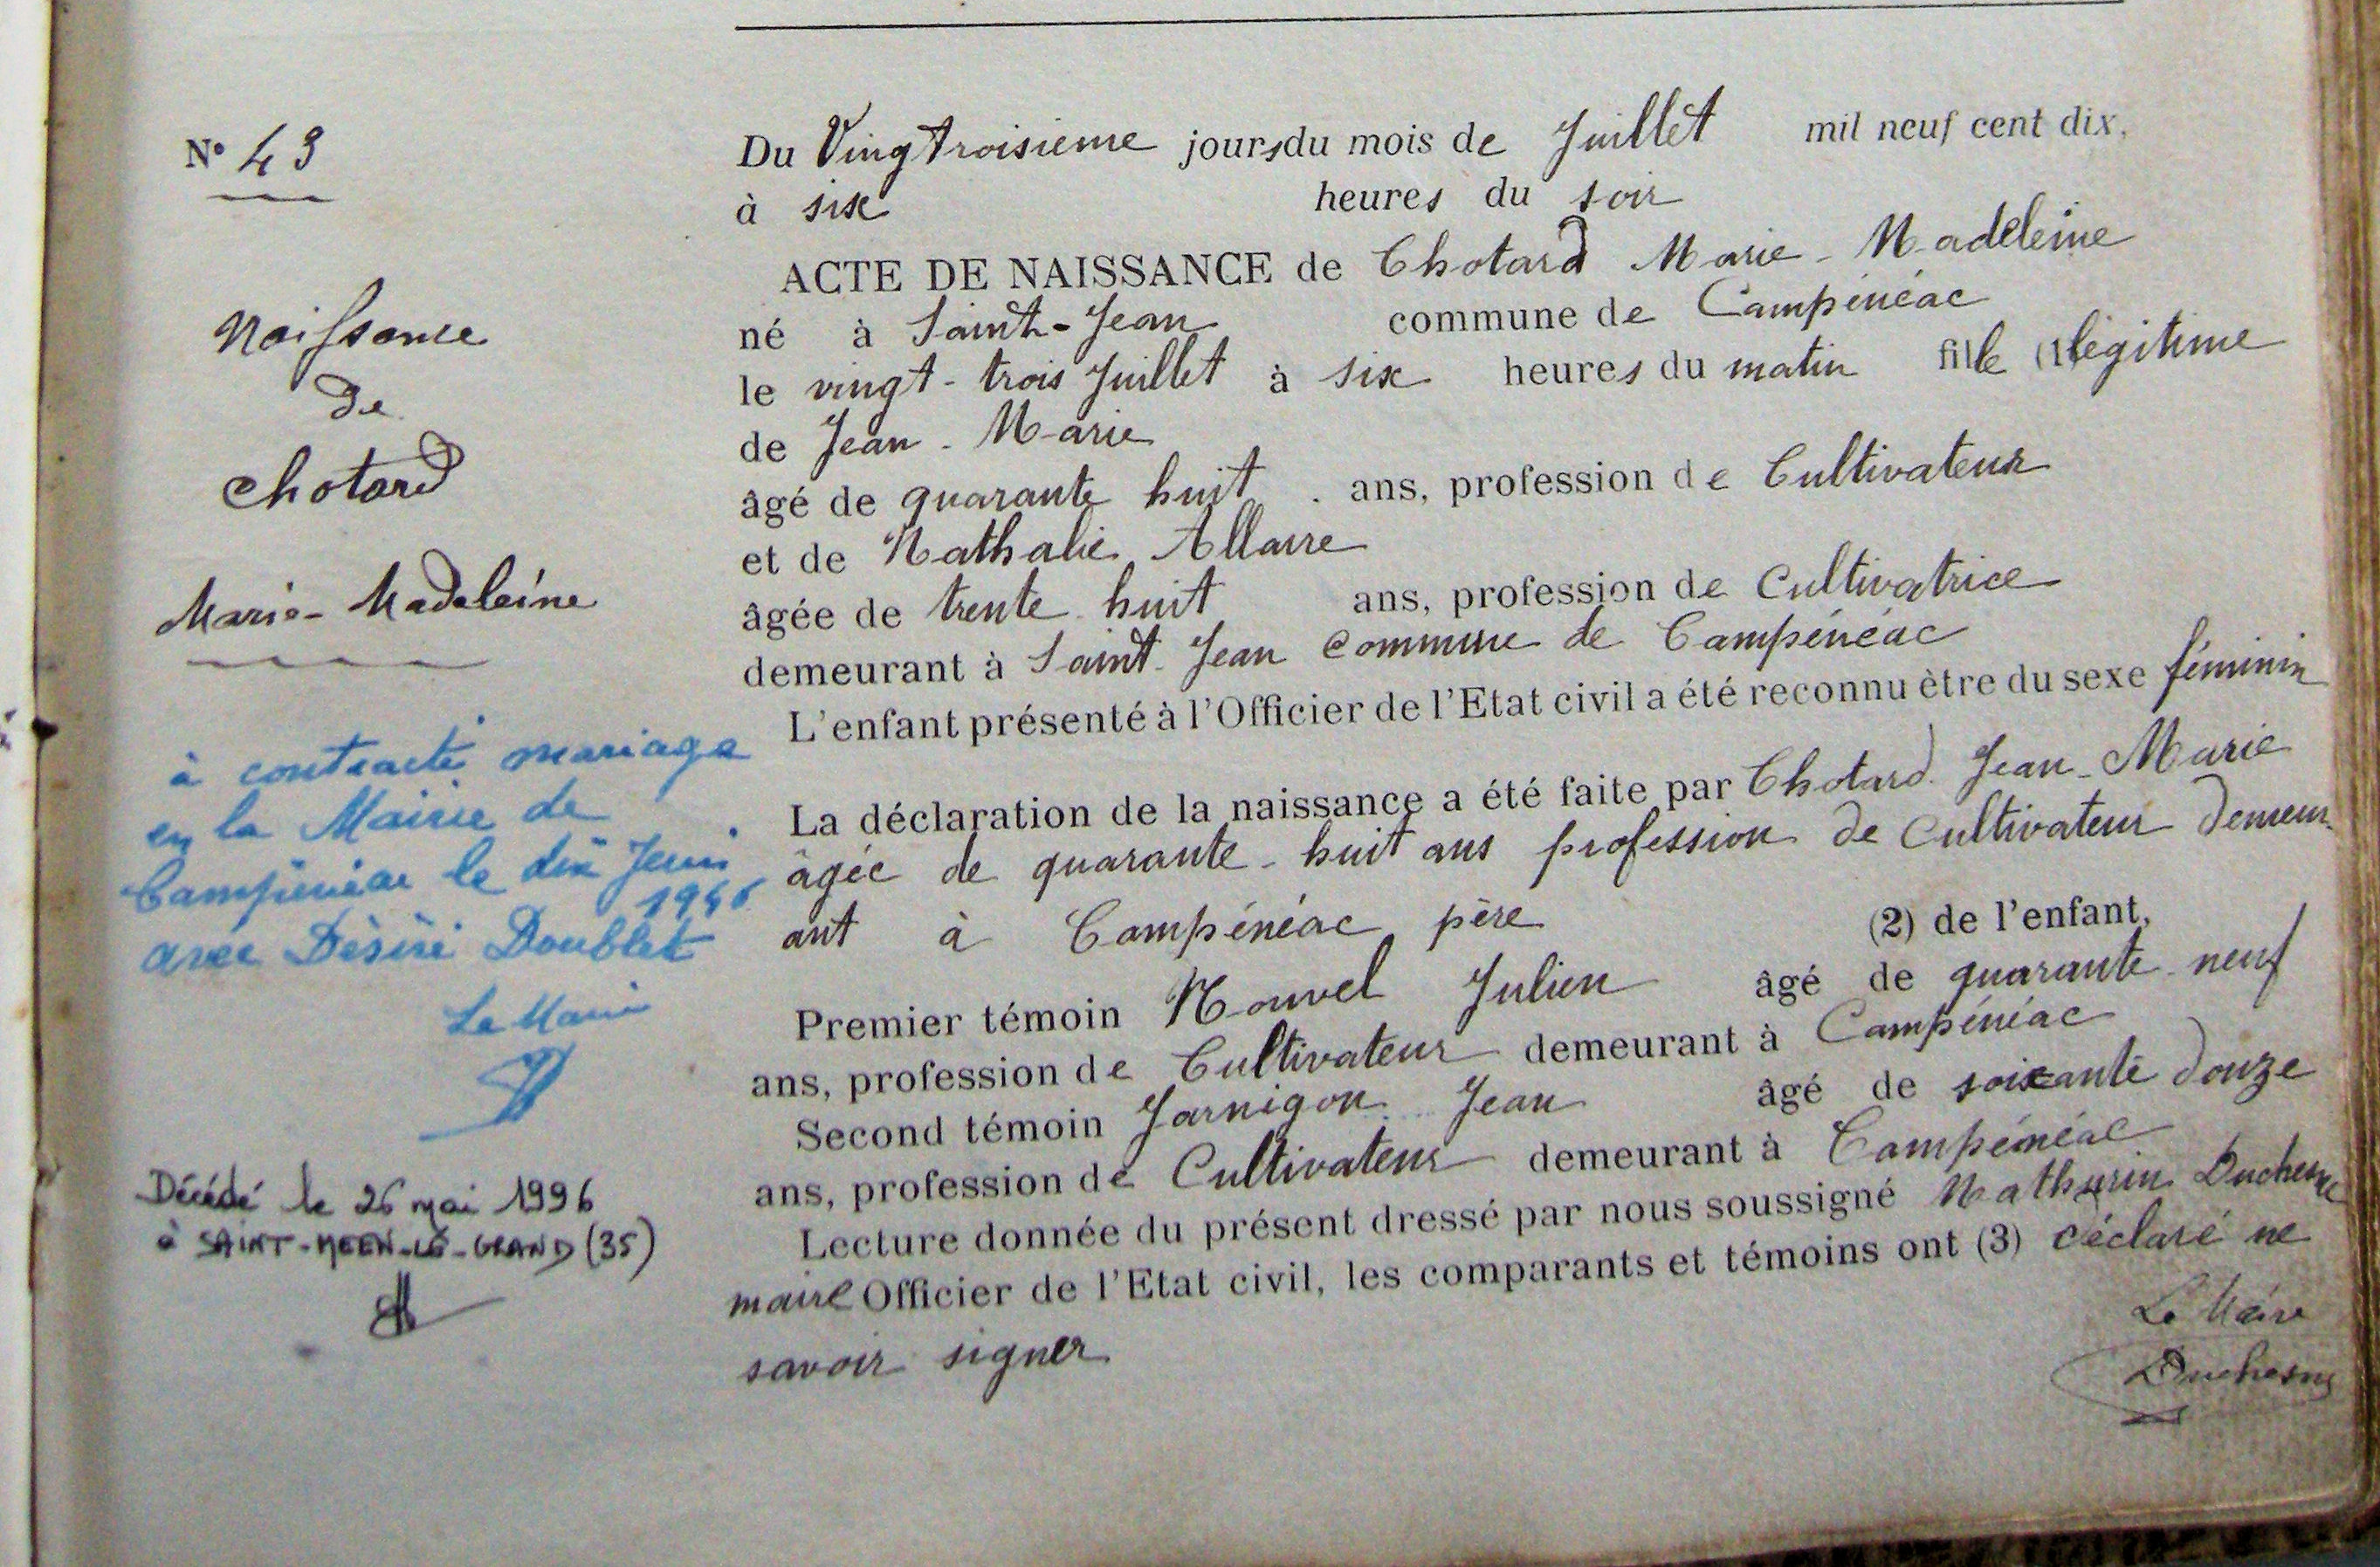 N° 43
Naissance
de
Chotard
Marie-Madeleine
à contracté mariage
en la Mairie de
Campénéac le dix Juin
1946
avec Désiré Doublet
Le Maire
Décédé le 26 mai 1996
à SAINT-MEEN-LE-GRAND (35)
Du Vingtroisieme jours du mois de Juillet mil neuf cent dix,
à six heures du soir
ACTE DE NAISSANCE de Chotard Marie-Madeleine
né à Saint-Jean commune de Campénéac
le vingt-trois Juillet à six heures du matin fille (1) légitime
de Jean-Marie
âgé de quarante huit ans, profession de Cultivateur
et de Nathalie Allaire
âgée de trente huit ans, profession de Cultivatrice
demeurant à Saint-Jean commune de Campénéac
L'enfant présenté à l'Officier de l'Etat civil a été reconnu être du sexe féminin
La déclaration de la naissance a été faite par Chotard Jean-Marie
âgée de quarante-huit ans profession de cultivateur demeur-
ant à Campénéac père (2) de l'enfant,
Premier témoin Nouvel Julien âgé de quarante-neuf
ans, profession de Cultivateur demeurant à Campénéac
Second témoin Jarnigon Jean âgé de soixante douze
ans, profession de Cultivateur demeurant à Campénéac
Lecture donnée du présent dressé par nous soussigné Mathurin Duchesne
maire Officier de l'Etat civil, les comparants et témoins ont (3) déclaré ne
savoir signer
Le Maire
Duchesne